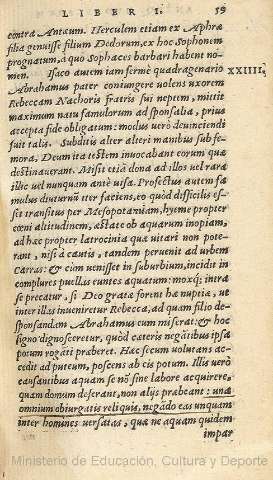 LIBER I. 59
contra Antæum. Herculem etiam ex Aphræ
filia genuisse filium Dedorum, ex hoc Sophonem
prognatum, à quo Sophaces barbari habent no-
men. Isaco autem iam fermè quadragenario XXIIII.
Abrahamus pater coniungere uolens uxorem
Rebeccam Nachoris fratris sui neptem, mittit
maximum natu famulorum ad sponsalia, prius
accepta fide obligatum: modus uerò deuinciendi
fuit talis. Subditis alter alteri manibus sub fe-
mora, Deum ita testem inuocabant eorum quæ
destinauerant. Misit etiã dona ad illos uel rara
illic uel nunquam ante uisa. Profectus autem fa-
mulus diuturnũ iter faciens, eo quòd difficilis es-
set transitus per Mesopotamiam, hyeme propter
cœni altitudinem, æstate ob aquarum inopiam,
ad hæc propter latrocinia quæ uitari non pote-
rant, nisi à cautis, tandem peruenit ad urbem
Carras: & cùm uenisset in suburbium, incidit in
complures puellas euntes aquatum: moxq́; intra
se precatur, si Deo gratæ forent hæ nuptiæ, ut
inter illas inueniretur Rebecca, ad quam filio de-
sponsandam Abrahamus eum miserat: & hoc
signo dignosceretur, quòd cæteris negãtibus ipsa
potum rogati præberet. Hæc secum uolutans ac-
cedit ad puteum, poscens ab eis potum. Illis uerò
causantibus aquam se nõ sine labore acquirere,
quam domum deferant, non alijs præbeant: una
omnium obiurgatis reliquis, negãdo eas unquam
inter homines uersatas, quæ ne aquam quidem
impar
Ministerio de Educación, Cultura y Deporte